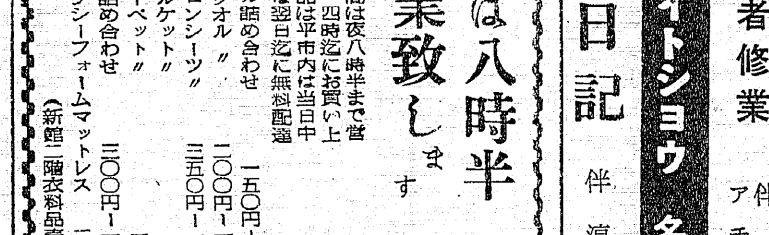 者修業
伴
ア
イトショウ
日記
伴 淳
は八時半
業致します
間は夜八時半まで営
四時迄にお買い上
品は平市内は当日中
は翌日迄に無料配達
詰め合わせ 一五〇円ー
タオル 〃 二〇〇円ー
ンシーツ〃 三五〇円ー
ルケット〃
ーペット〃
詰め合わせ 三〇〇円ー
シーフォームマットレス
(新館二階衣料品